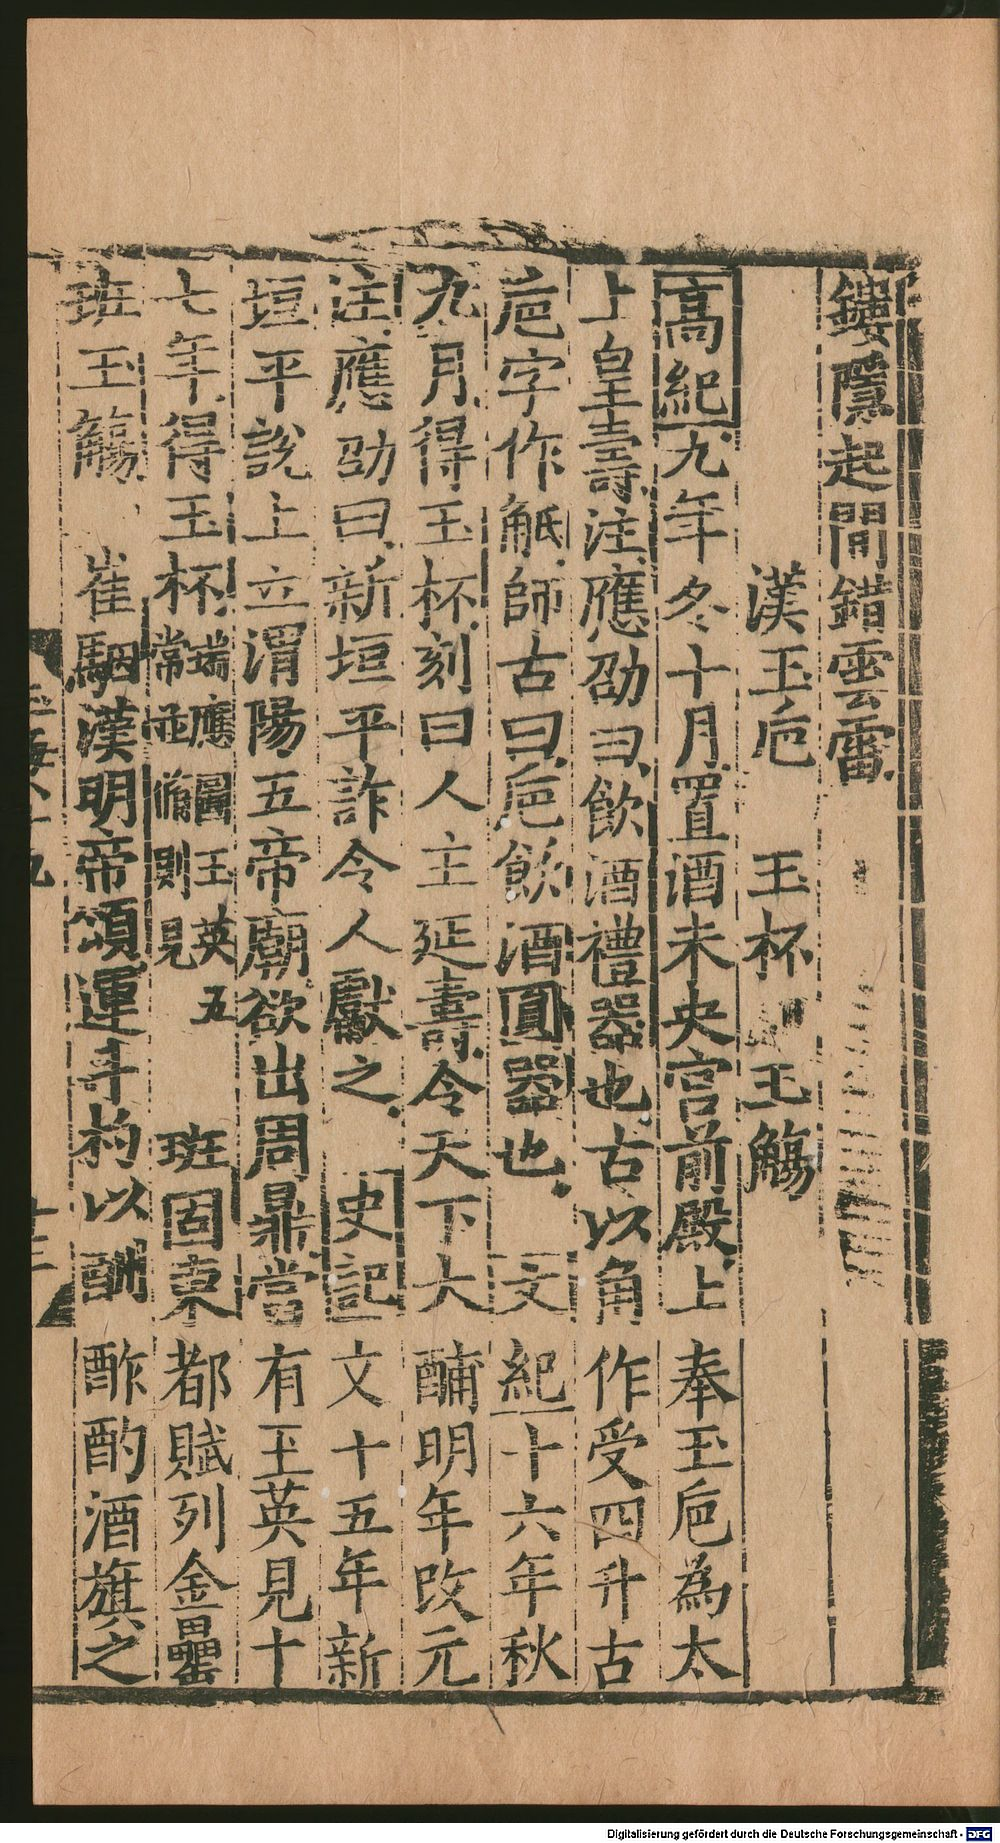 鏤隱起閒錯雲雷
漢玉巵 玉杯 玉觴
高紀九年冬十月置酒未央宫前殿上奉玉巵為太
上皇壽注應劭曰飲酒禮器也古以角作受四升古
巵字作觝師古曰巵飲酒圓器也 文紀十六年秋
九月得玉杯刻曰人主延壽令天下大酺明年改元
注應劭曰新垣平詐令人獻之 史記文十五年新
垣平說上立渭陽五帝廟欲出周鼎當有玉英見十
七年得玉杯瑞應圖玉英五常並脩則見 班固東都賦列金罍
班玉觴 崔駰漢明帝頌運斗杓以酬酢酌酒旗之
Digitalisierung gefördert durch die Deutsche Forschungsgemeinschaft - DFG